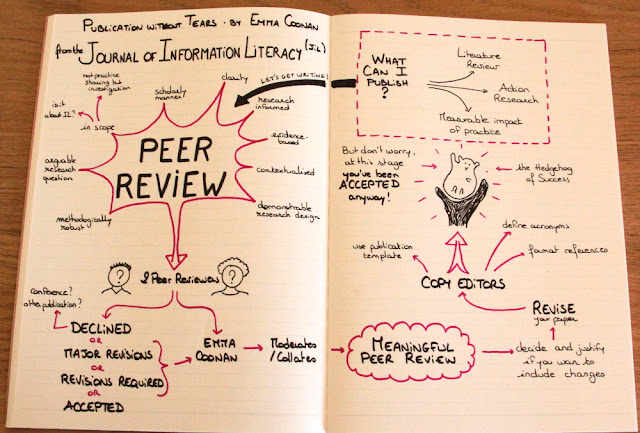 PUBLICATION WITHOUT TEARS - BY EMMA COONAN
from the JOURNAL OF INFORMATION LITERACY (JiL)
LET'S GET WRITING!
clarity
scholarly
manner
not practice
sharing but
investigation
is it
about IL?
in scope
arguable
research
question
methodologically
robust
research
informed
evidence-
based
contextualised
demonstrable
research design
PEER
REVIEW
2 Peer Reviewers
?
?
conference?
other publication?
DECLINED
OR
MAJOR REVISIONS
OR
REVISIONS REQUIRED
OR
ACCEPTED
EMMA
COONAN
Moderates
/Collates
WHAT
CAN I
PUBLISH
?
Literature
Review
Action
Research
Measurable impact
of practice
But don't worry,
at this stage
you've been
ACCEPTED
anyway!
the Hedgehog
of Success
define acronyms
format references
use publication
template
COPY EDITORS
REVISE
your paper
MEANINGFUL
PEER REVIEW
decide and justify
if you want to
include changes